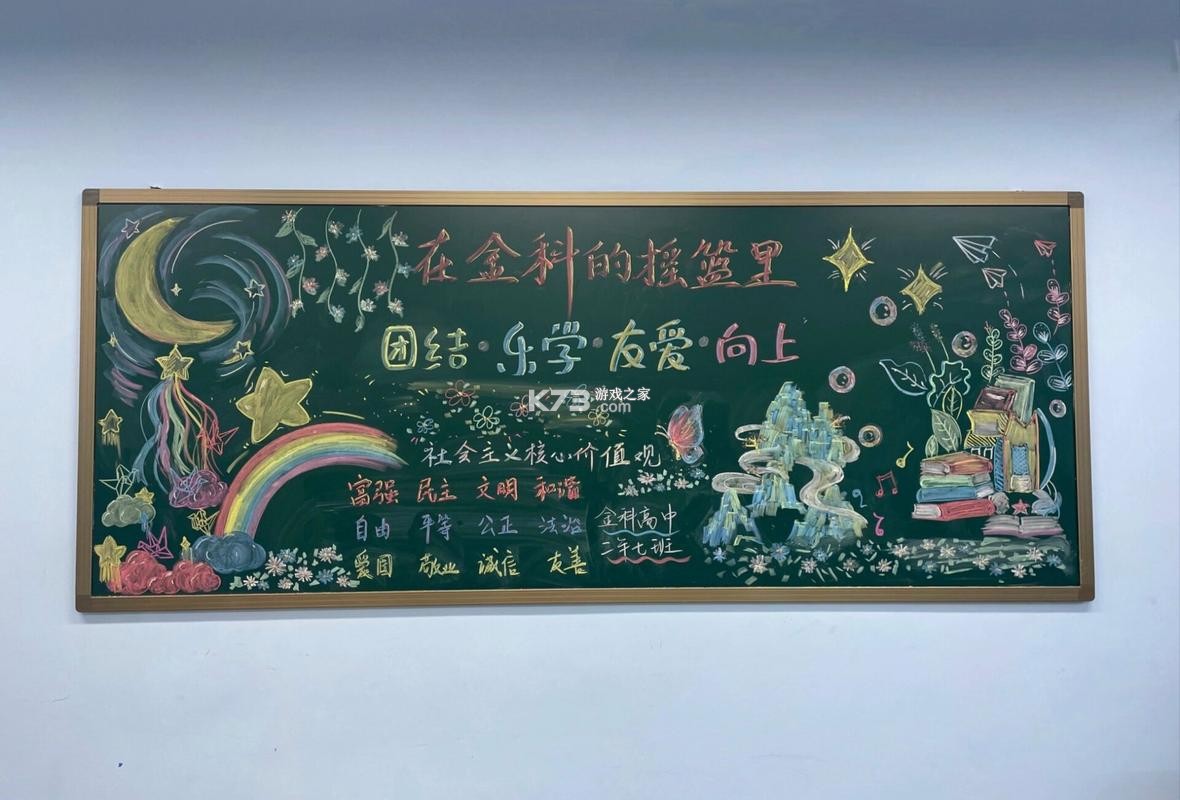 在金科的摇篮里
团结·乐学·友爱·向上
K73 游戏之家
.com
"社会主义核心价值观"
富强 民主 文明 和谐
自由 平等 公正 法治
爱国 敬业 诚信 友善
金科高中
二年七班